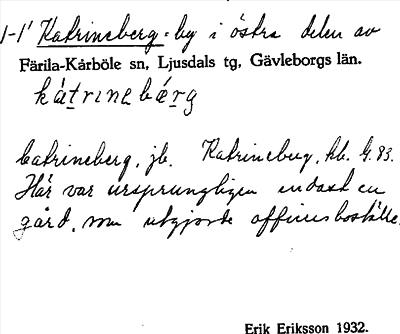 1-1' Katrineberg - by i östra delen av
Färila-Kårböle sn, Ljusdals tg, Gävleborgs län.
kátrinebærg
Catrineberg, jb. Katrineberg, kb. G. 83.
Här var ursprungligen endast en
gård, som utgjorde officersboställe.
Erik Eriksson 1932.